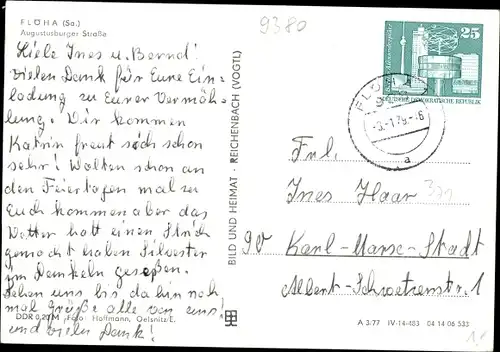 FLÖHA (Sa.)
Augustusburger Straße
9380
25
DEUTSCHE DEMOKRATISCHE REPUBLIK
FLÖHA
a
Liebe Ines u. Bernd!
vielen Dank für Eure Ein-
ladung zu Eurer Vermäh-
lung. Wir kommen
Katrin freut sich schon
sehr! Wollten schon an
den Feiertagen mal zu
Euch kommen aber das
Wetter hatt einen Strich
gemacht haben Silvester
im Dunkeln gesessen.
Sehen uns bis da hin noch
mal Grüße alle von uns!
und vielen Dank!
DDR 0,20 M Foto: Hoffmann, Oelsnitz/E.
BILD UND HEIMAT · REICHENBACH (VOGTL)
Frl.
Ines Haar
90 Karl-Marx-Stadt
Albert-Schweitzerstr. 1
A 3/77 IV-14-483 04 14 06 533